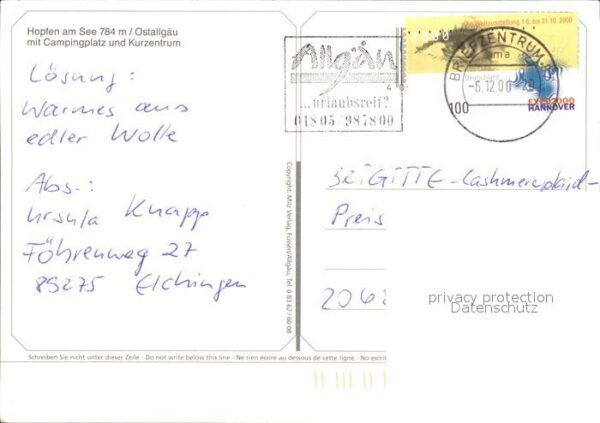 Hopfen am See 784 m / Ostallgäu
mit Campingplatz und Kurzentrum
Lösung :
Warmes aus
edler Wolle
Abs.:
Ursula Knapp
Föhrenweg 27
89275 Elchingen
Allgäu
...urlaubsreif?
01805/987800
Weltausstellung 1.6. bis 31.10. 2000
Deutschland
EXPO2000
HANNOVER
BRIEFZENTRUM
-6.12.00
100
Copyright: Milz Verlag, Füssen/Allgäu, Tel. 0 83 62 / 60 08
BRIGITTE-Cashmereplaid-
Preis
2042
privacy protection
Datenschutz
Schreiben Sie nicht unter dieser Zeile - Do not write below this line - Ne rien écrire au dessous de cette ligne - No escri